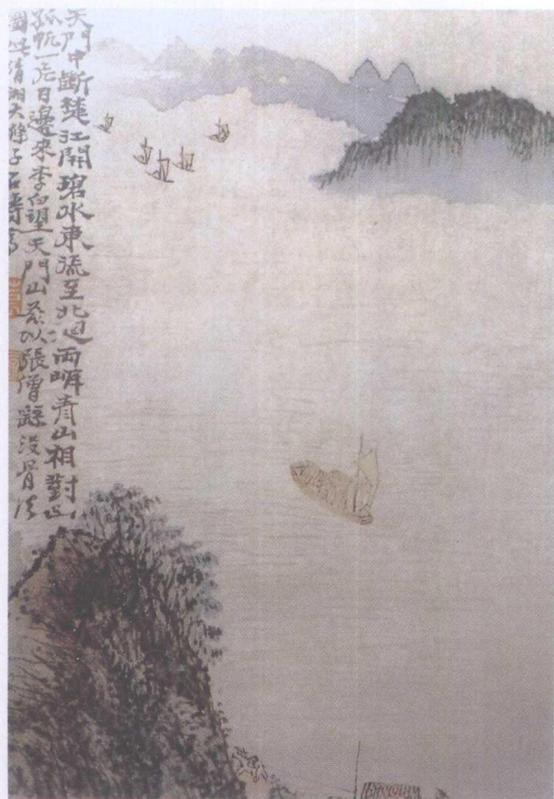 天門中斷楚江開碧水東流至北迴兩岸青山相對出
孤帆一片日邊來李白望天門山茲以張僧繇沒骨法
圖此清湘大滌子石濤